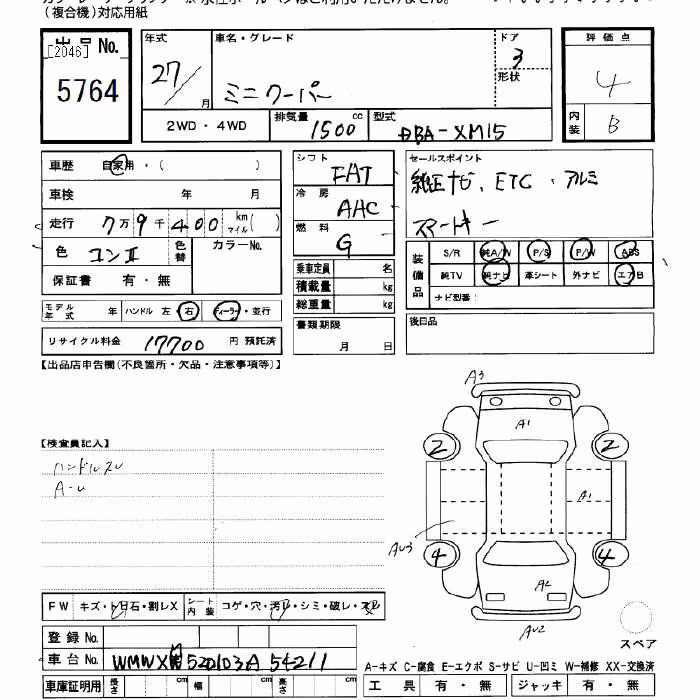 (複合機)対応用紙
出品 No.
[2046]
5764
年式 27 / 月
車名・グレード ミニクーパー
ドア 3
形状
2WD・4WD
排気量 1500 cc
型式 DBA-XM15
評価点 4
内装 B
車歴 自家用・( )
車検 年 月
走行 7万9千400 km マイル( )
色 コンⅡ 色替 カラーNo.
保証書 有・無
モデル年式 年 ハンドル 左 右 ディーラー・並行
リサイクル料金 17700 円 預託済
シフト FAT
冷房 AAC
燃料 G
乗車定員 名
積載量 kg
総重量 kg
書類期限
月 日
セールスポイント
純正ナビ、ETC・アルミ
スマートキー
装備品
S/R 純A/W P/S P/W ABS
純TV 純ナビ 革シート 外ナビ エアB
ナビ型番:
後日品
【出品店申告欄(不良箇所・欠品・注意事項等)】
【検査員記入】
ハンドルスレ
A-U
A3
A1
2
2
A1
AU3
4
4
A2
AU2
スペア
FW キズ・ト日石・割レX シート内装 コゲ・穴・汚レ・シミ・破レ・スレ
登録 No.
車台 No. WMWXM520103A54211
車庫証明用 長さ cm 幅 cm 高さ cm
A-キズ C-腐食 E-エクボ S-サビ U-凹ミ W-補修 XX-交換済
工具 有・無 ジャッキ 有・無